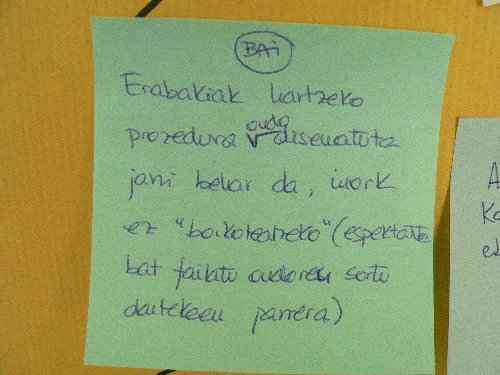 BAi
Erabakiak hartzeko
prozedura ondo disenatuta
jarri behar da, inork
ez "boikoteatzeko" (espektatiba
bat faltatu ondoren sortu
daitekeen parrera)
A
Ka